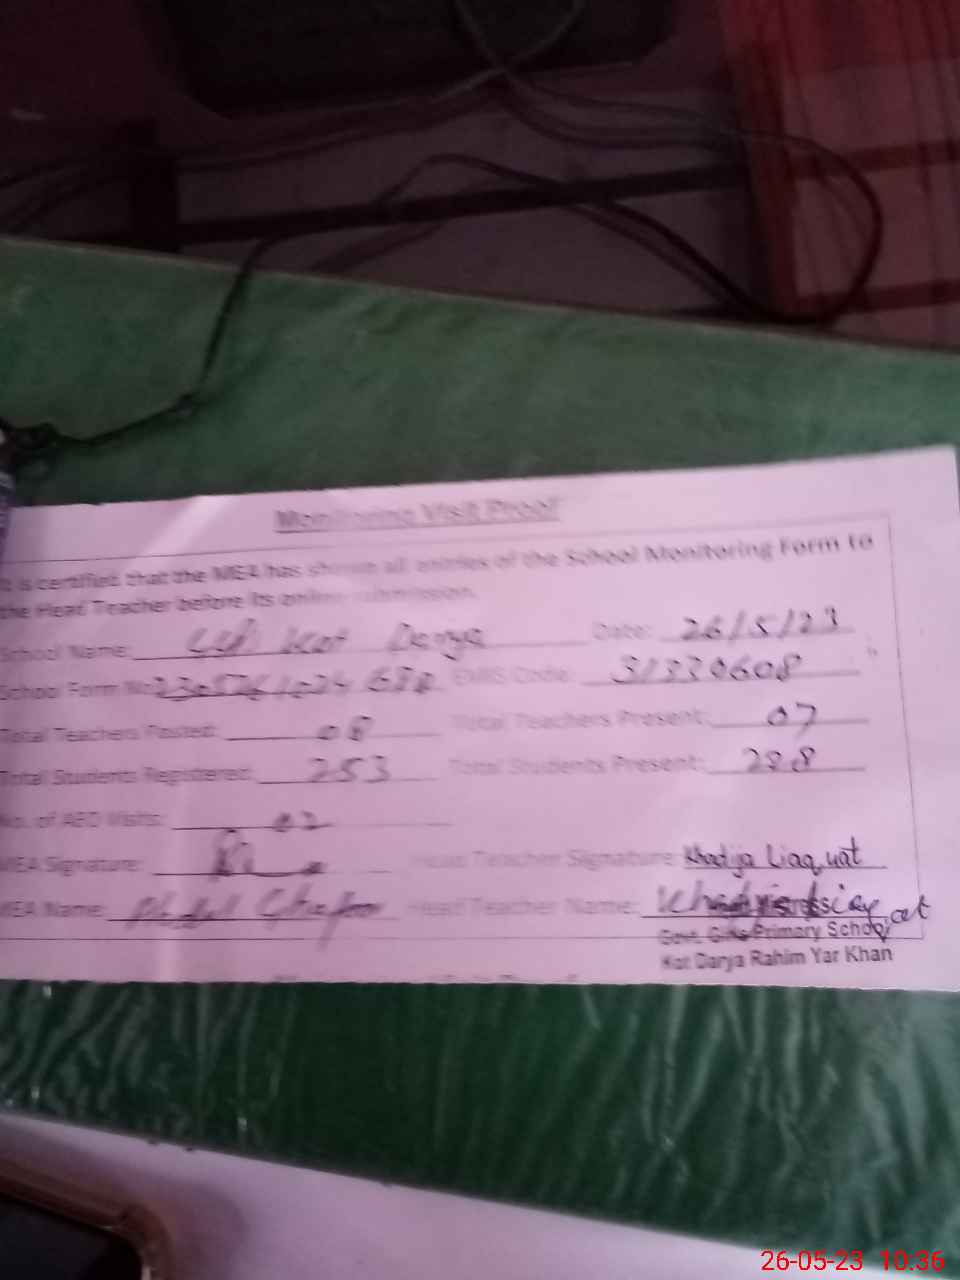 Monitoring Visit Proof
It is certified that the MEA has shown all entries of the School Monitoring Form to
the Head Teacher before its online submission.
School Name: Kot Darya Date: 26/5/23
School Form No. EMIS Code: 31330608
Total Teachers Posted: 08 Total Teachers Present: 07
Total Students Registered: 253 Total Students Present:
No. of AEO Visits: 02
MEA Signature: Head Teacher Signature: Khadija Liaquat
MEA Name: Abdul Ghafoor Head Teacher Name: Khadija
Govt. Girls Primary School
Kot Darya Rahim Yar Khan
26-05-23 10:36